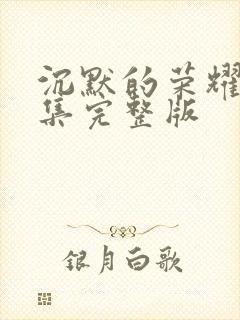 沉默的荣耀
集完整版
银月白歌